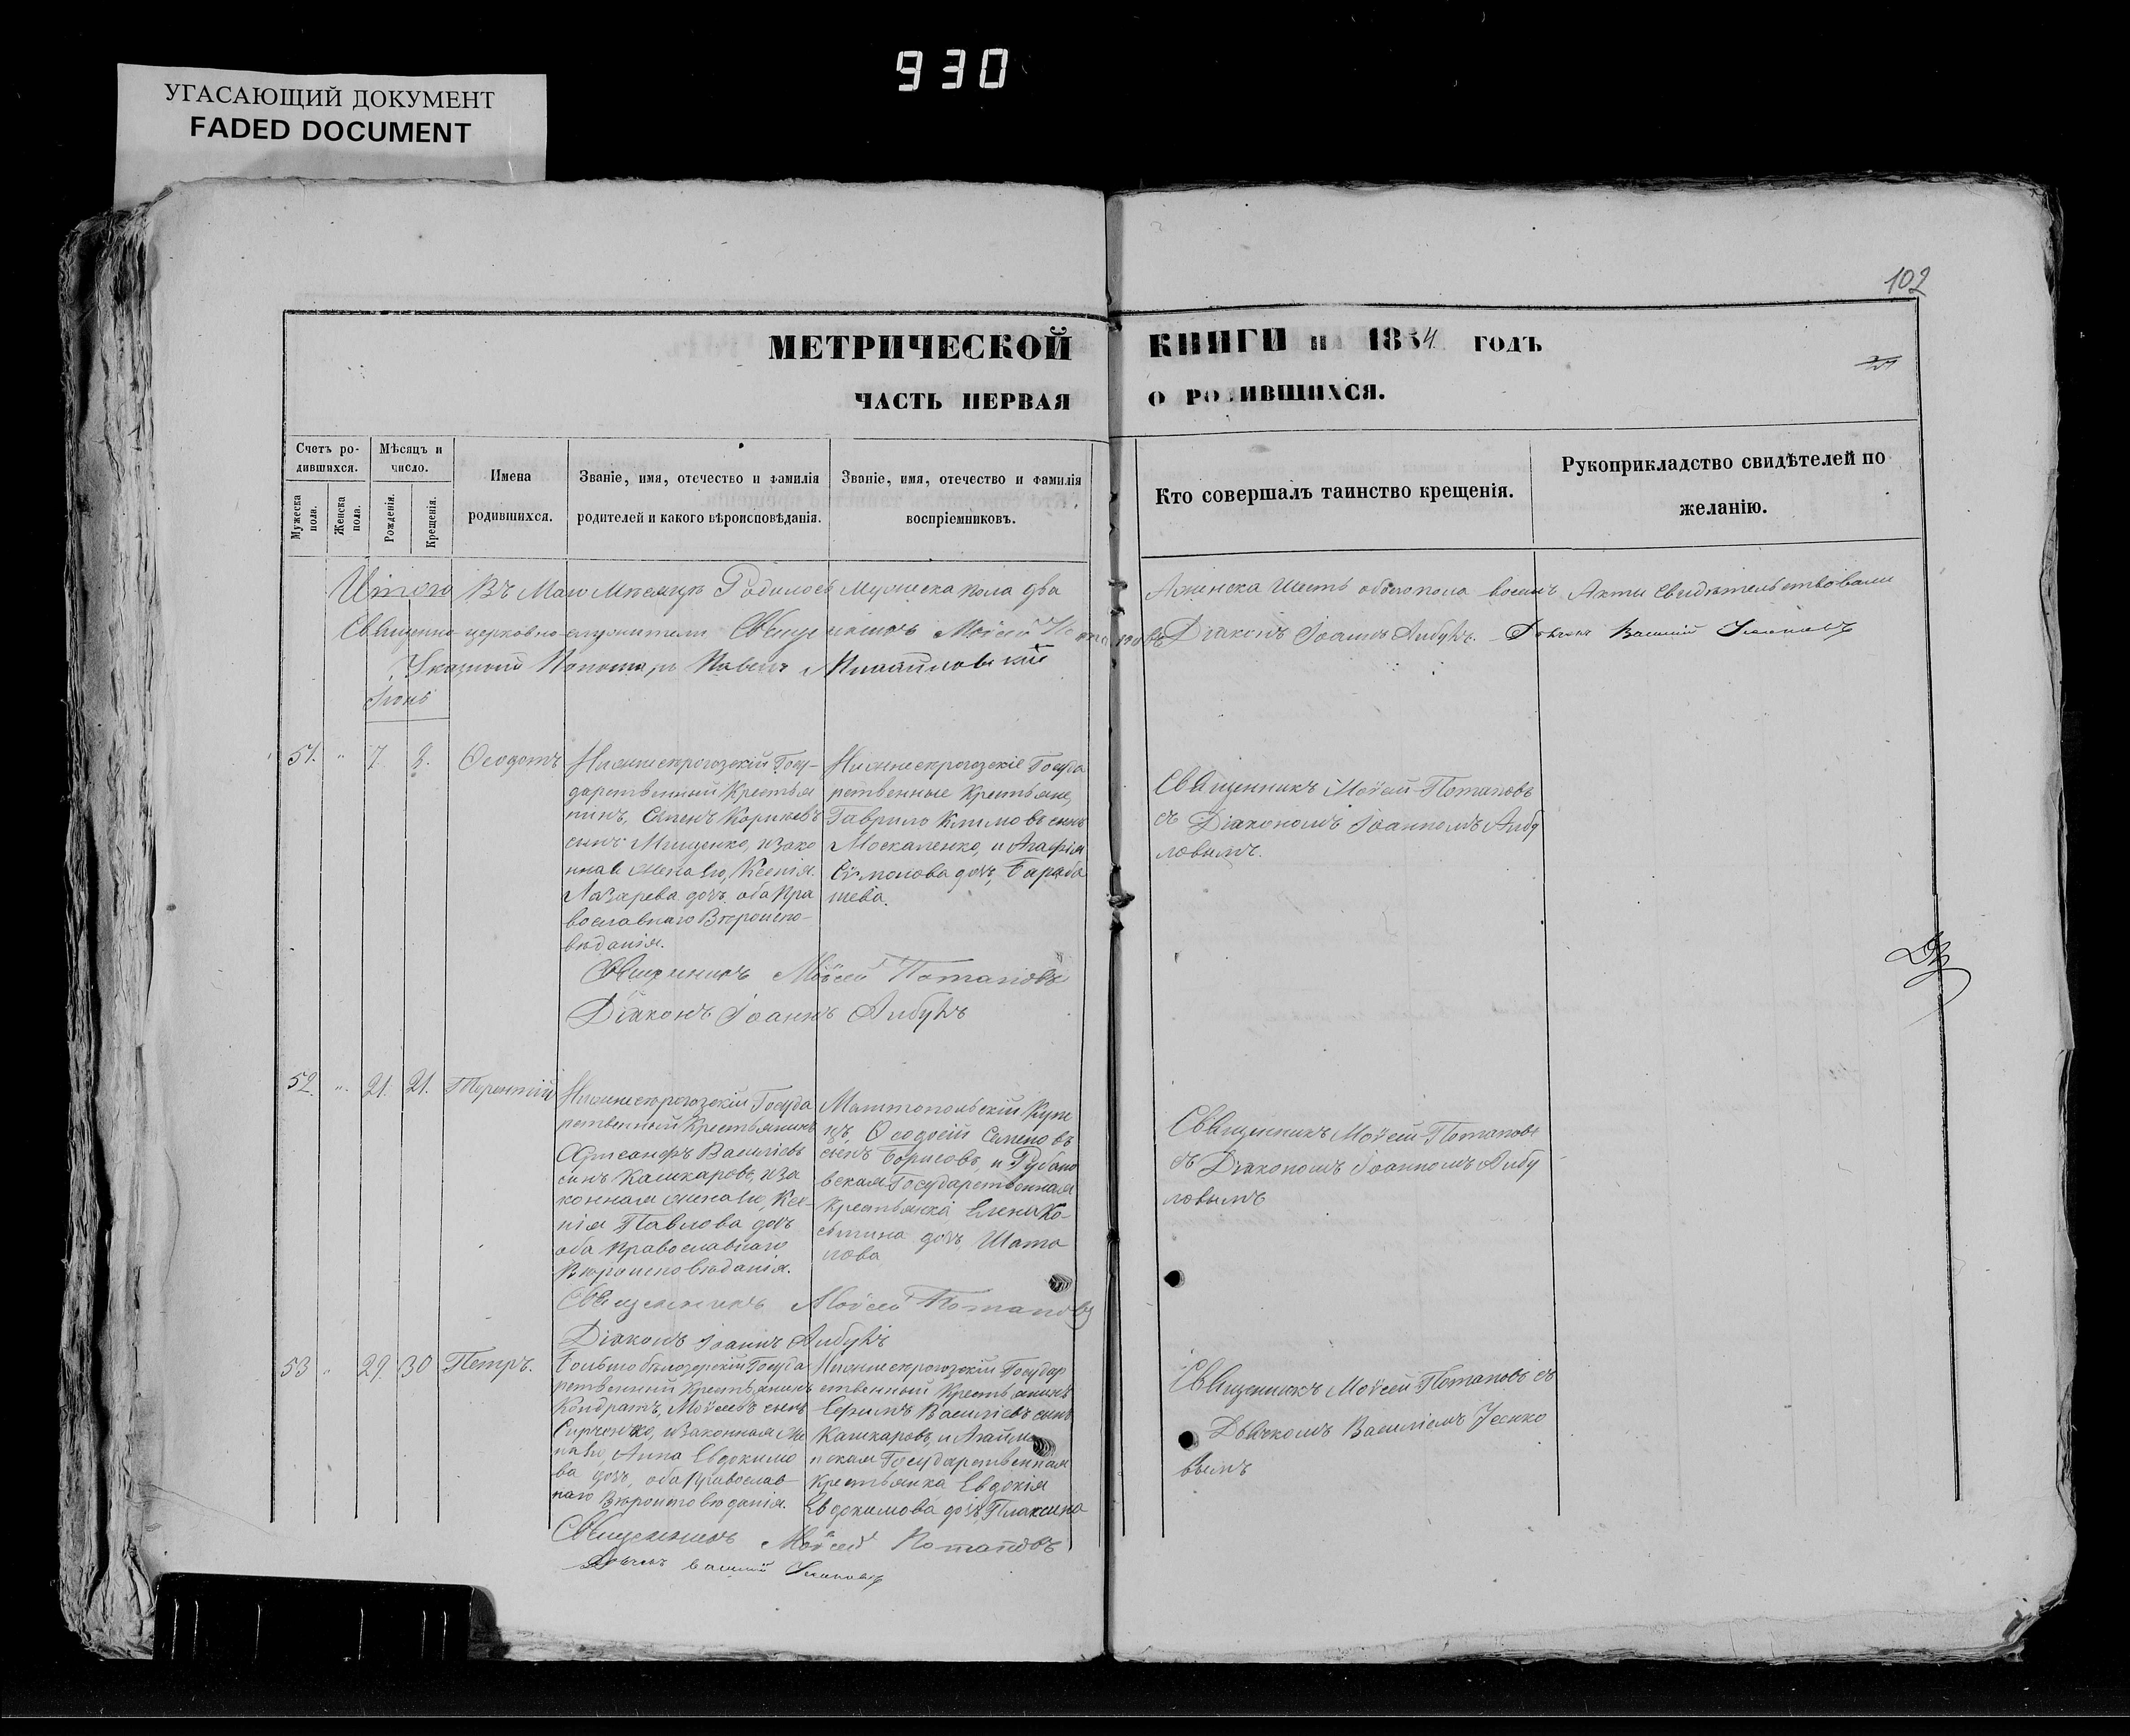 930
УГАСАЮЩИЙ ДОКУМЕНТ
FADED DOCUMENT
102
МЕТРИЧЕСКОЙ КНИГИ на 1854 годъ
ЧАСТЬ ПЕРВАЯ О РОДИВШИХСЯ.
Счетъ родившихся.
Мужеска пола.
Женска пола.
Мѣсяцъ и число.
Рожденія.
Крещенія.
Имена родившихся.
Званіе, имя, отечество и фамилія родителей и какого вѣроисповѣданія.
Званіе, имя, отечество и фамилія воспріемниковъ.
Кто совершалъ таинство крещенія.
Рукоприкладство свидѣтелей по желанію.
Итого въ Маю Мѣсяцѣ Родилось Мужеска пола два
Аженска шесть обоего пола восемь Акты свидѣтельствовали
Священно-церковно-служители Священникъ Моѵсей Потаповъ Діаконъ Іоаннъ
Указный Пономарь Павелъ
Іюнь
51. " 7. 8. Ѳеодотъ
Нижнесѣрогозскій Госу-
дарственный Крестья
нинъ, Семенъ Корнѣевъ
сынъ Мищенко, изако
нная женаего, Ксенія
Лазарева дочь, оба Пра
вославнаго Вѣроиспо-
вѣданія.
Нижнесѣрогозскіе Госуда
рственные Крестьяне,
Гаврило Климовъ сынъ
Москаленко, и Агафія
Сѵмонова дочь, Бараба
шева.
Священникъ Моѵсей Потаповъ
съ Діакономъ Іоанномъ
Священникъ Моѵсей Потаповъ
Діаконъ Іоаннъ
52. " 21. 21. Терентій
Нижнесѣрогозскій Госуда
рственный Крестьянинъ
Васильевъ
сынъ Кашкаровъ, иза
конная женаего, Ксе-
нія Павлова дочь
оба Православнаго
Вѣроисповѣданія.
Купе
цъ, Ѳеодосій Семеновъ
сынъ Борисовъ, и Рубано
вская Государственная
Крестьянка Елена Ко-
дочь, Шата
лова
Священникъ Моѵсей Потаповъ
съ Діакономъ Іоанномъ
Священникъ Моѵсей Потаповъ
Діаконъ Іоаннъ
53 " 29. 30 Петръ.
Большебѣлозерскій Госуда
рственный Крестьянинъ
Кондратъ, Моѵсеевъ сынъ
изаконная же
наего, Анна Евдокимо
ва дочь, оба Православ-
наго Вѣроисповѣданія.
Нижнесѣрогозскій Государ
ственный Крестьянинъ
Ефимъ Васильевъ сынъ
Кашкаровъ, и
Государственная
Крестьянка Евдокія
Евдокимова дочь, Плаксина
Священникъ Моѵсей Потаповъ съ
Дьячкомъ Василіемъ
Священникъ Моѵсей Потаповъ
Дьячекъ Василій